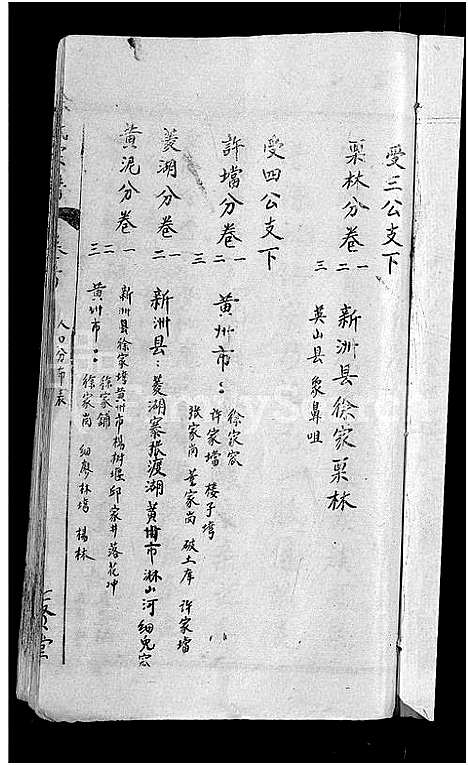 受三公支下
栗林分卷 一二三 新洲县徐家栗林
英山县象鼻咀
受四公支下
許垱分卷 一二三 黄州市：徐家宕
许家垱 楼子塆
张家岗 董家岗 破土库 许家垱
菱湖分卷 一二 新洲县：菱湖寨张渡湖黄州市淋山河细兔宕
黄泥分卷 一二三 新洲县徐家塆黄州市杨树堰邱家井落花冲
黄州市：徐家铺
徐家岗 细廖林塆 杨林
人口分布表